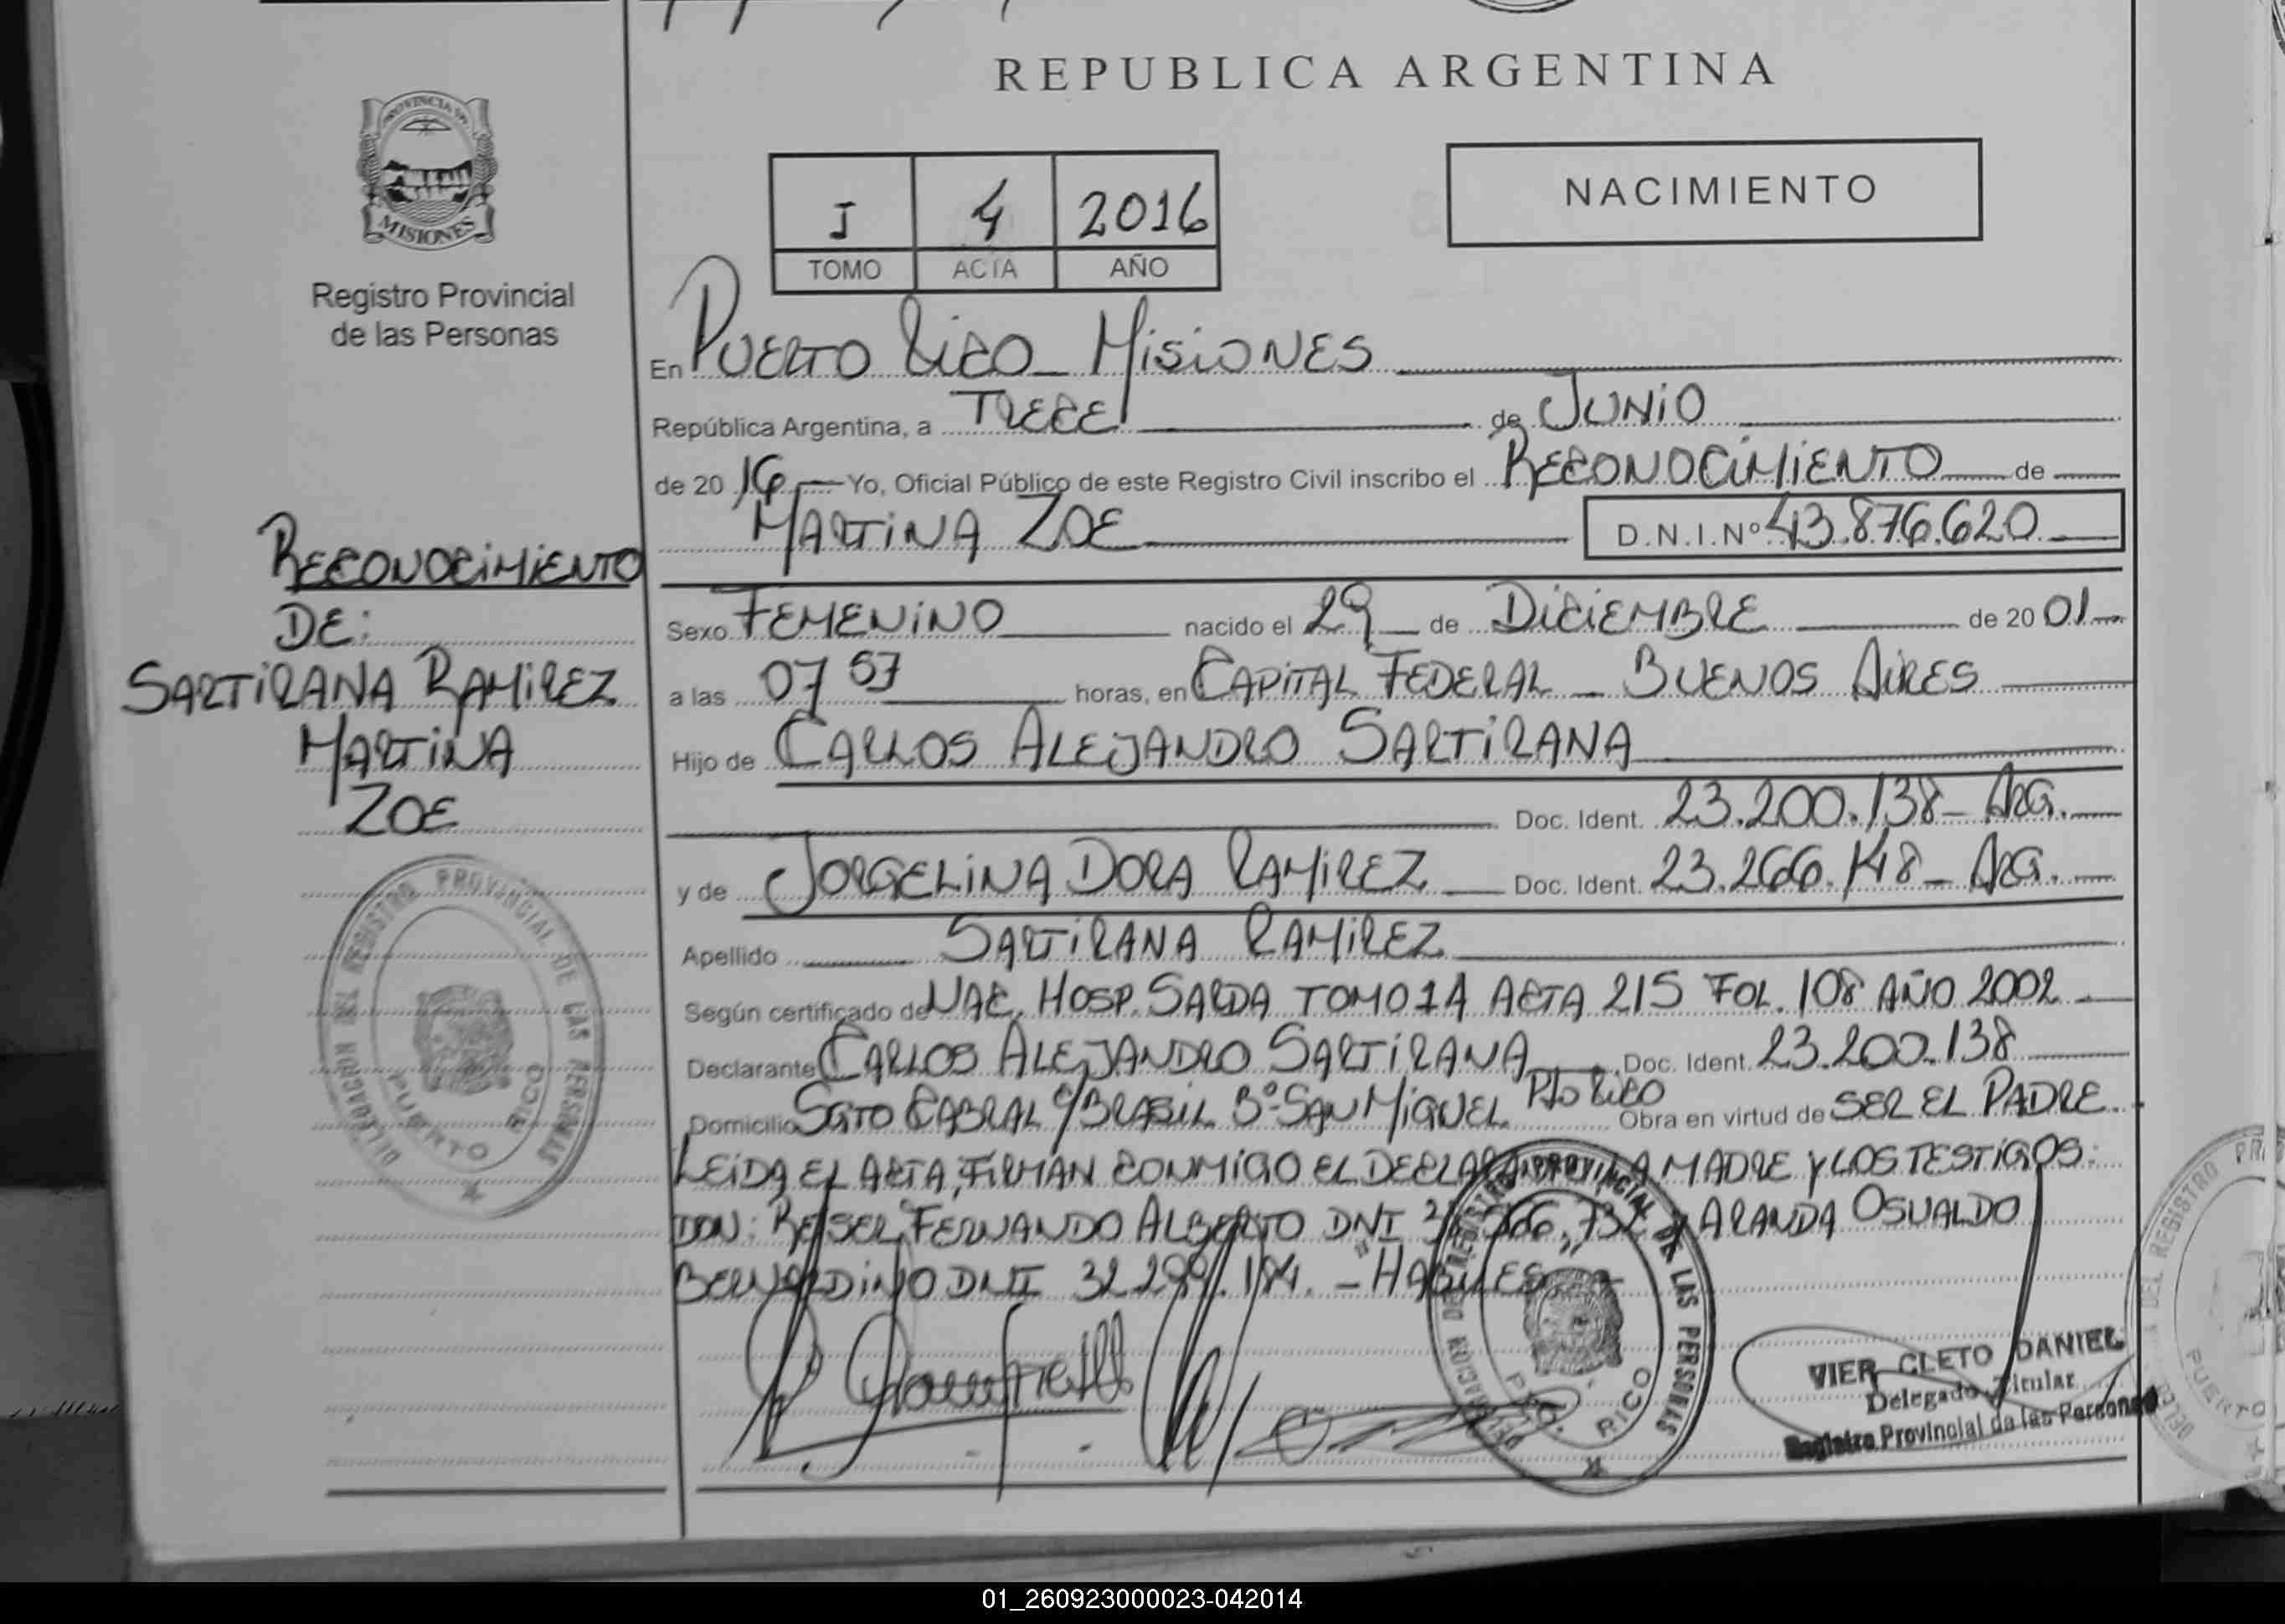 REPUBLICA ARGENTINA
PROVINCIA DE
MISIONES
Registro Provincial
de las Personas
I 4 2016
TOMO ACTA AÑO
NACIMIENTO
En PUERTO RICO - MISIONES
República Argentina, a TRECE de JUNIO
de 20 16 Yo, Oficial Público de este Registro Civil inscribo el RECONOCIMIENTO de
MARTINA ZOE D.N.I.Nº 43.876.620
RECONOCIMIENTO
DE:
SARTIRANA RAMIREZ
MARTINA
ZOE
Sexo FEMENINO nacido el 29 de DICIEMBRE de 20 01
a las 07 57 horas, en CAPITAL FEDERAL - BUENOS AIRES
Hijo de CARLOS ALEJANDRO SARTIRANA
Doc. Ident. 23.200.138 - ARG.
y de JORGELINA DORA RAMIREZ Doc. Ident. 23.266.148 - ARG.
Apellido SARTIRANA RAMIREZ
Según certificado de NAC. HOSP. SARDA TOMO 1A ACTA 215 FOL. 108 AÑO 2002
Declarante CARLOS ALEJANDRO SARTIRANA Doc. Ident. 23.200.138
Domicilio SGTO CABRAL C/BRASIL Bº SAN MIGUEL PTO RICO Obra en virtud de SER EL PADRE.
LEIDA EL ACTA, FIRMAN CONMIGO EL MADRE Y LOS TESTIGOS:
DON: FERNANDO ALBERTO DNI ARANDA OSVALDO
BERNARDINO DNI - HABILES
DELEGACION DEL REGISTRO PROVINCIAL DE LAS PERSONAS
PUERTO RICO
DELEGACION DEL REGISTRO PROVINCIAL DE LAS PERSONAS
PTO. RICO
VIER CLETO DANIEL
Delegado Titular
Registro Provincial de las Personas
DEL REGISTRO
PUERTO
01_260923000023-042014